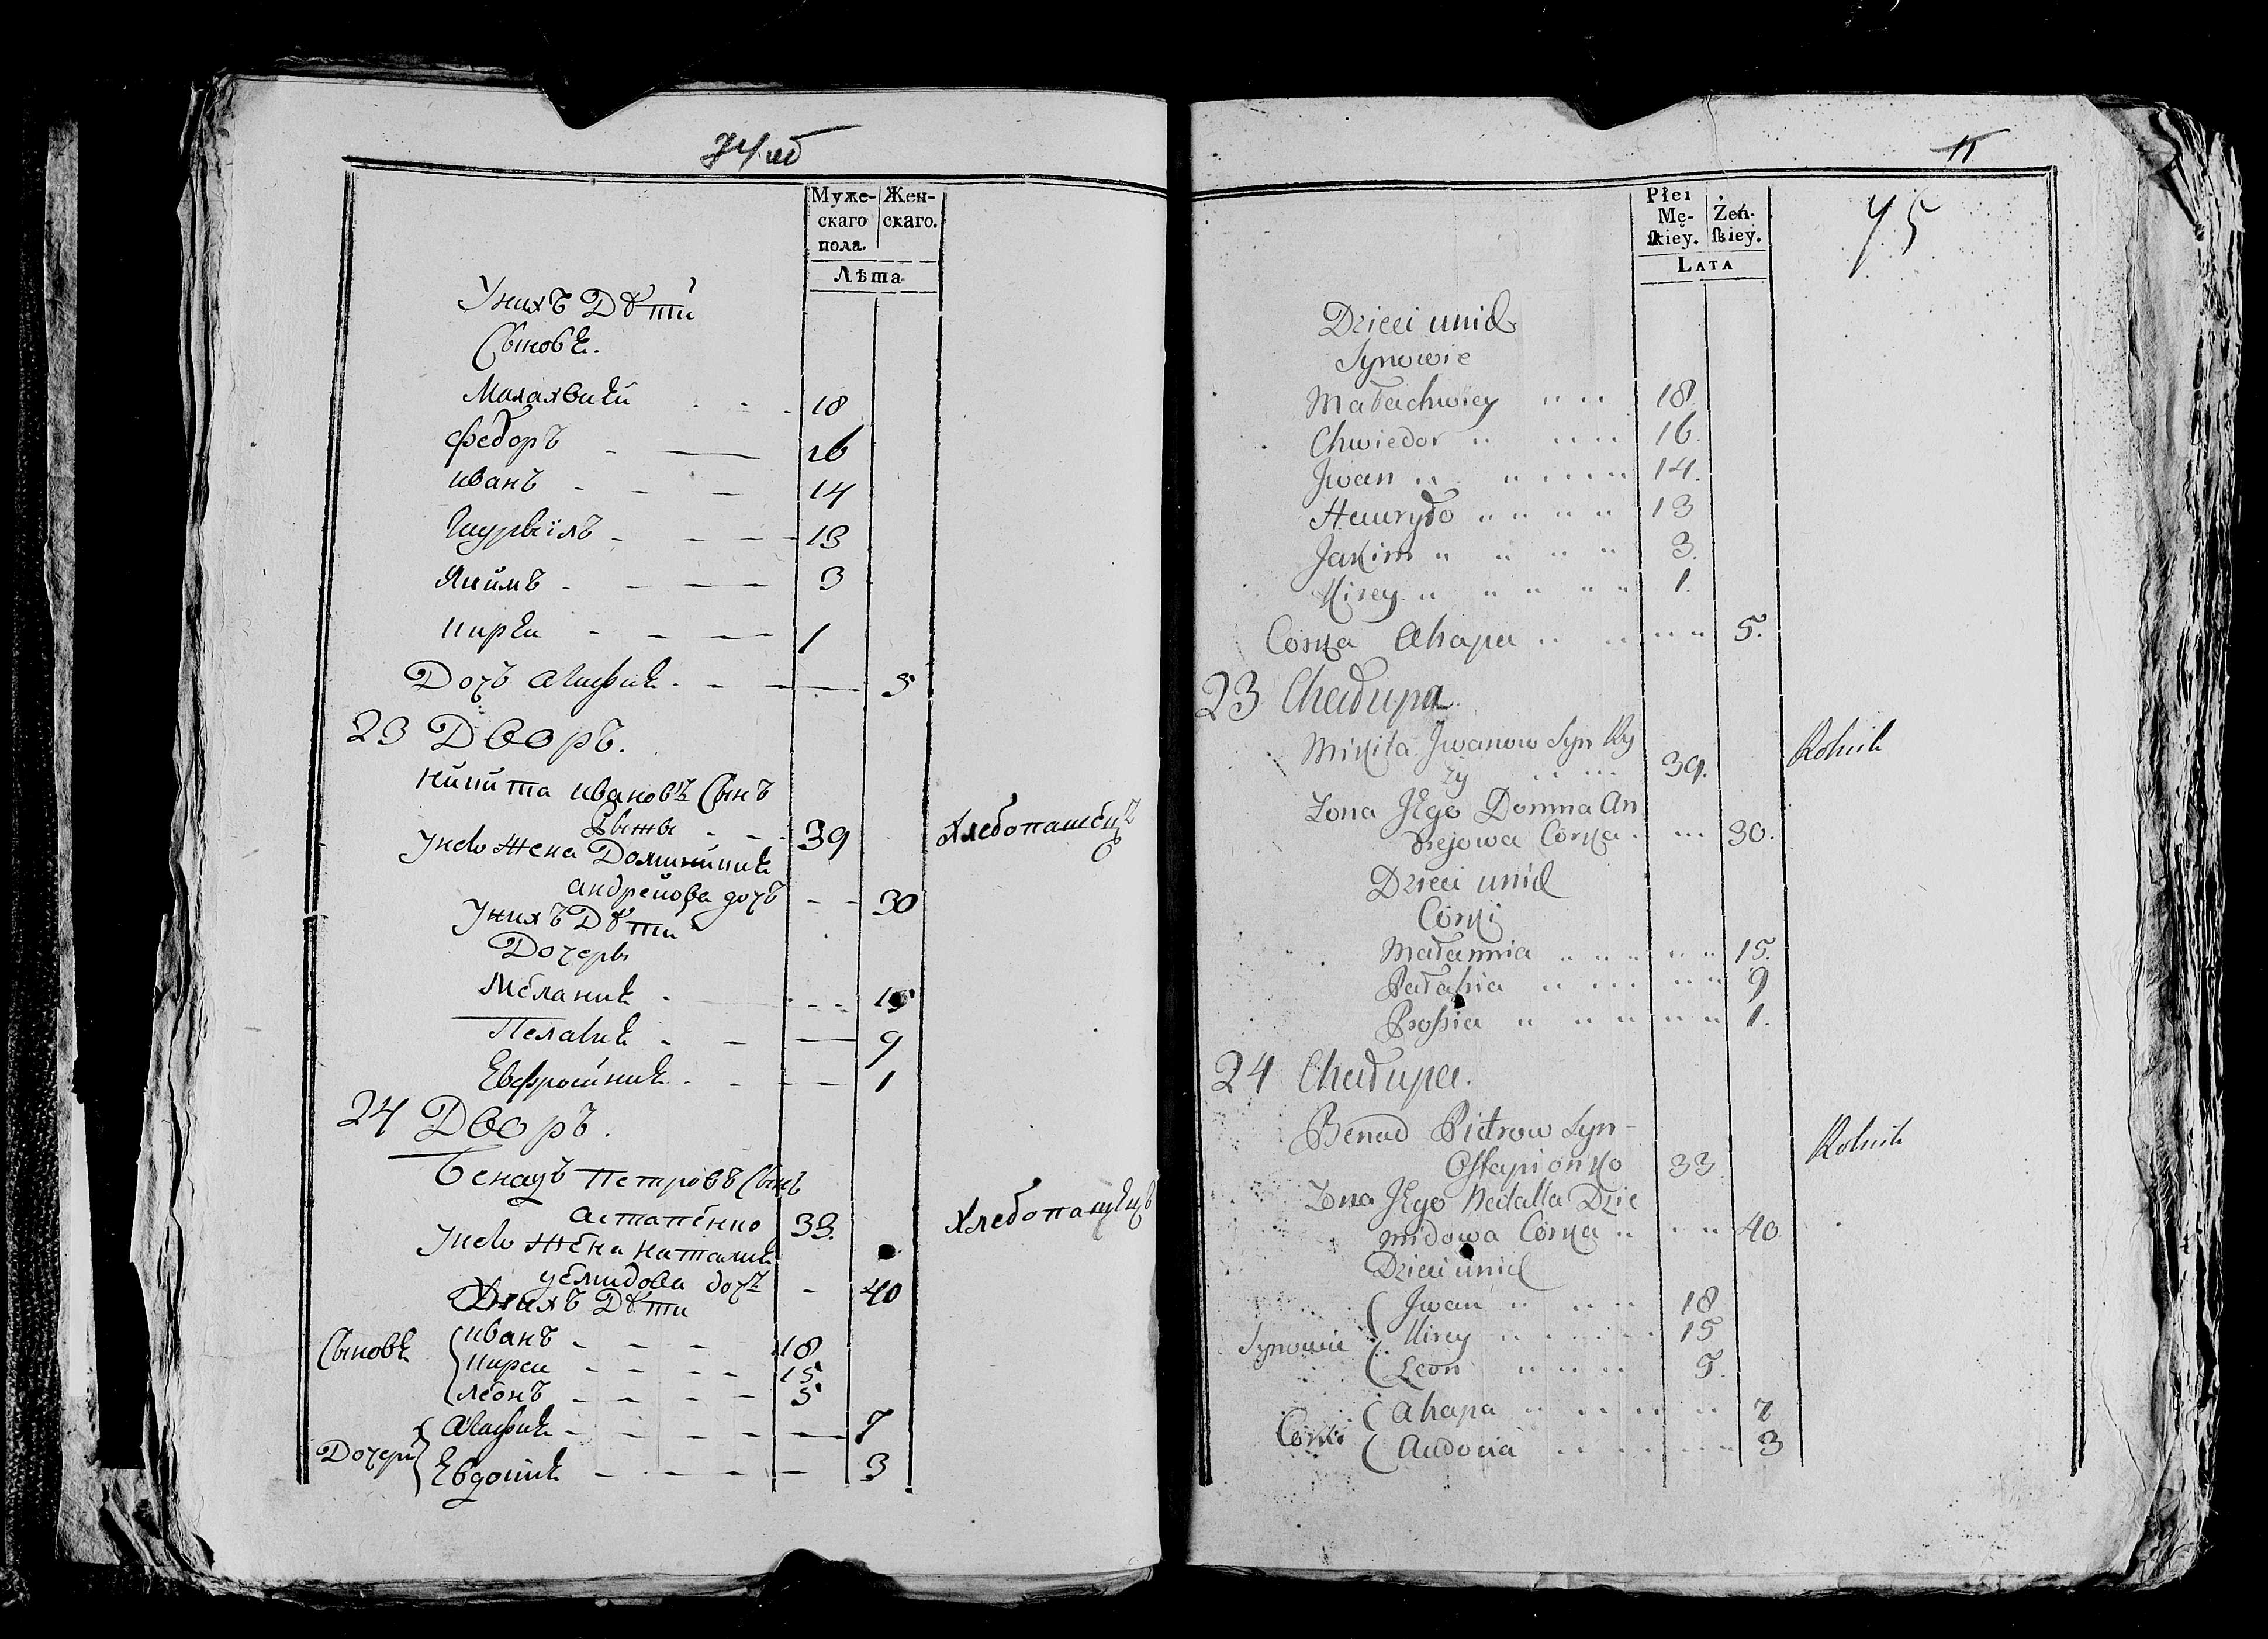 74 об
Муже-
скаго
пола.
Жен-
скаго.
Лѣта
У нихъ Дѣти
Сыновѣ.
Малахвѣй 18
Федоръ 16
иванъ 14
13
Якимъ 3
кирѣи 1
Дочъ Агафиѣ 5
23 Дворъ.
никита ивановъ Сынъ
Рыжы 39 Хлебопашецъ
У нево жена Доминикиѣ
андреиова дочъ 30
У нихъ Дѣти
Дочеры
Меланиѣ 15
Пелагиѣ 9
Евфросиниѣ 1
24 Дворъ.
Бенадъ Петровъ Сынъ
астапенко 33. Хлебопашецъ
У нево жена наталиѣ
демидова дочъ 40
У нихъ Дѣти
Сыновѣ
иванъ 18
кирѣи 15
леонъ 5
Дочери
Агафиѣ 7
Евдокиѣ 3
11
75
Płci
Mę-
skiey.
Żeń-
skiey.
LATA
Dzieci unich
Synowie
Małachwiey 18
Chwiedor 16.
Jwan 14.
Hawryło 13
Jakim 3.
Kirey 1.
Corka Ahapa 5.
23 Chałupa.
Mikita Jwanow Syn Ry
ży 39. Rolnik
Zona Jego Domna An
drejowa Corka 30.
Dzieci unich
Corki
Małannia 15.
Pałahia 9
Prosia 1.
24 Chałupa.
Benad Piotrow Syn
Ostapionko 33 Rolnik
Zona Jego Natalla Dzie
midowa Corka 40.
Dzieci unich
Synowie
Jwan 18
Kirey 15
Leon 5.
Corki
Ahapa 7
Audocia 3